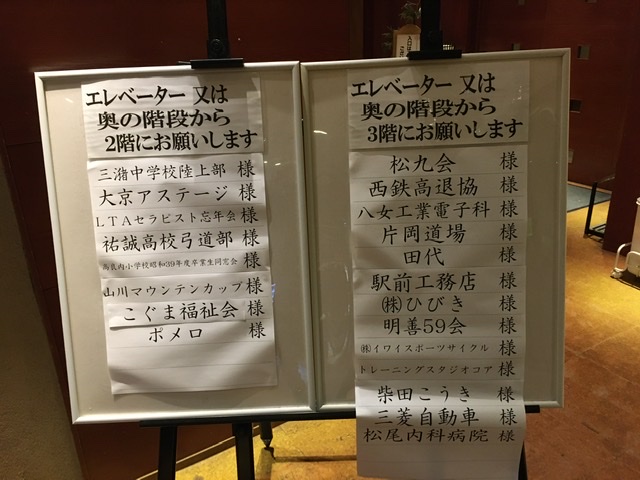 エレベーター 又は
奥の階段から
2階にお願いします
三潴中学校陸上部 様
大京アステージ 様
LTAセラピスト忘年会 様
祐誠高校弓道部 様
高良内小学校昭和39年度卒業生同窓会 様
山川マウンテンカップ 様
こぐま福祉会 様
ポメロ 様
エレベーター 又は
奥の階段から
3階にお願いします
松九会 様
西鉄高退協 様
八女工業電子科 様
片岡道場 様
田代 様
駅前工務店 様
㈱ひびき 様
明善59会 様
㈱イワイスポーツサイクル 様
トレーニングスタジオコア 様
柴田こうき 様
三菱自動車 様
松尾内科病院 様